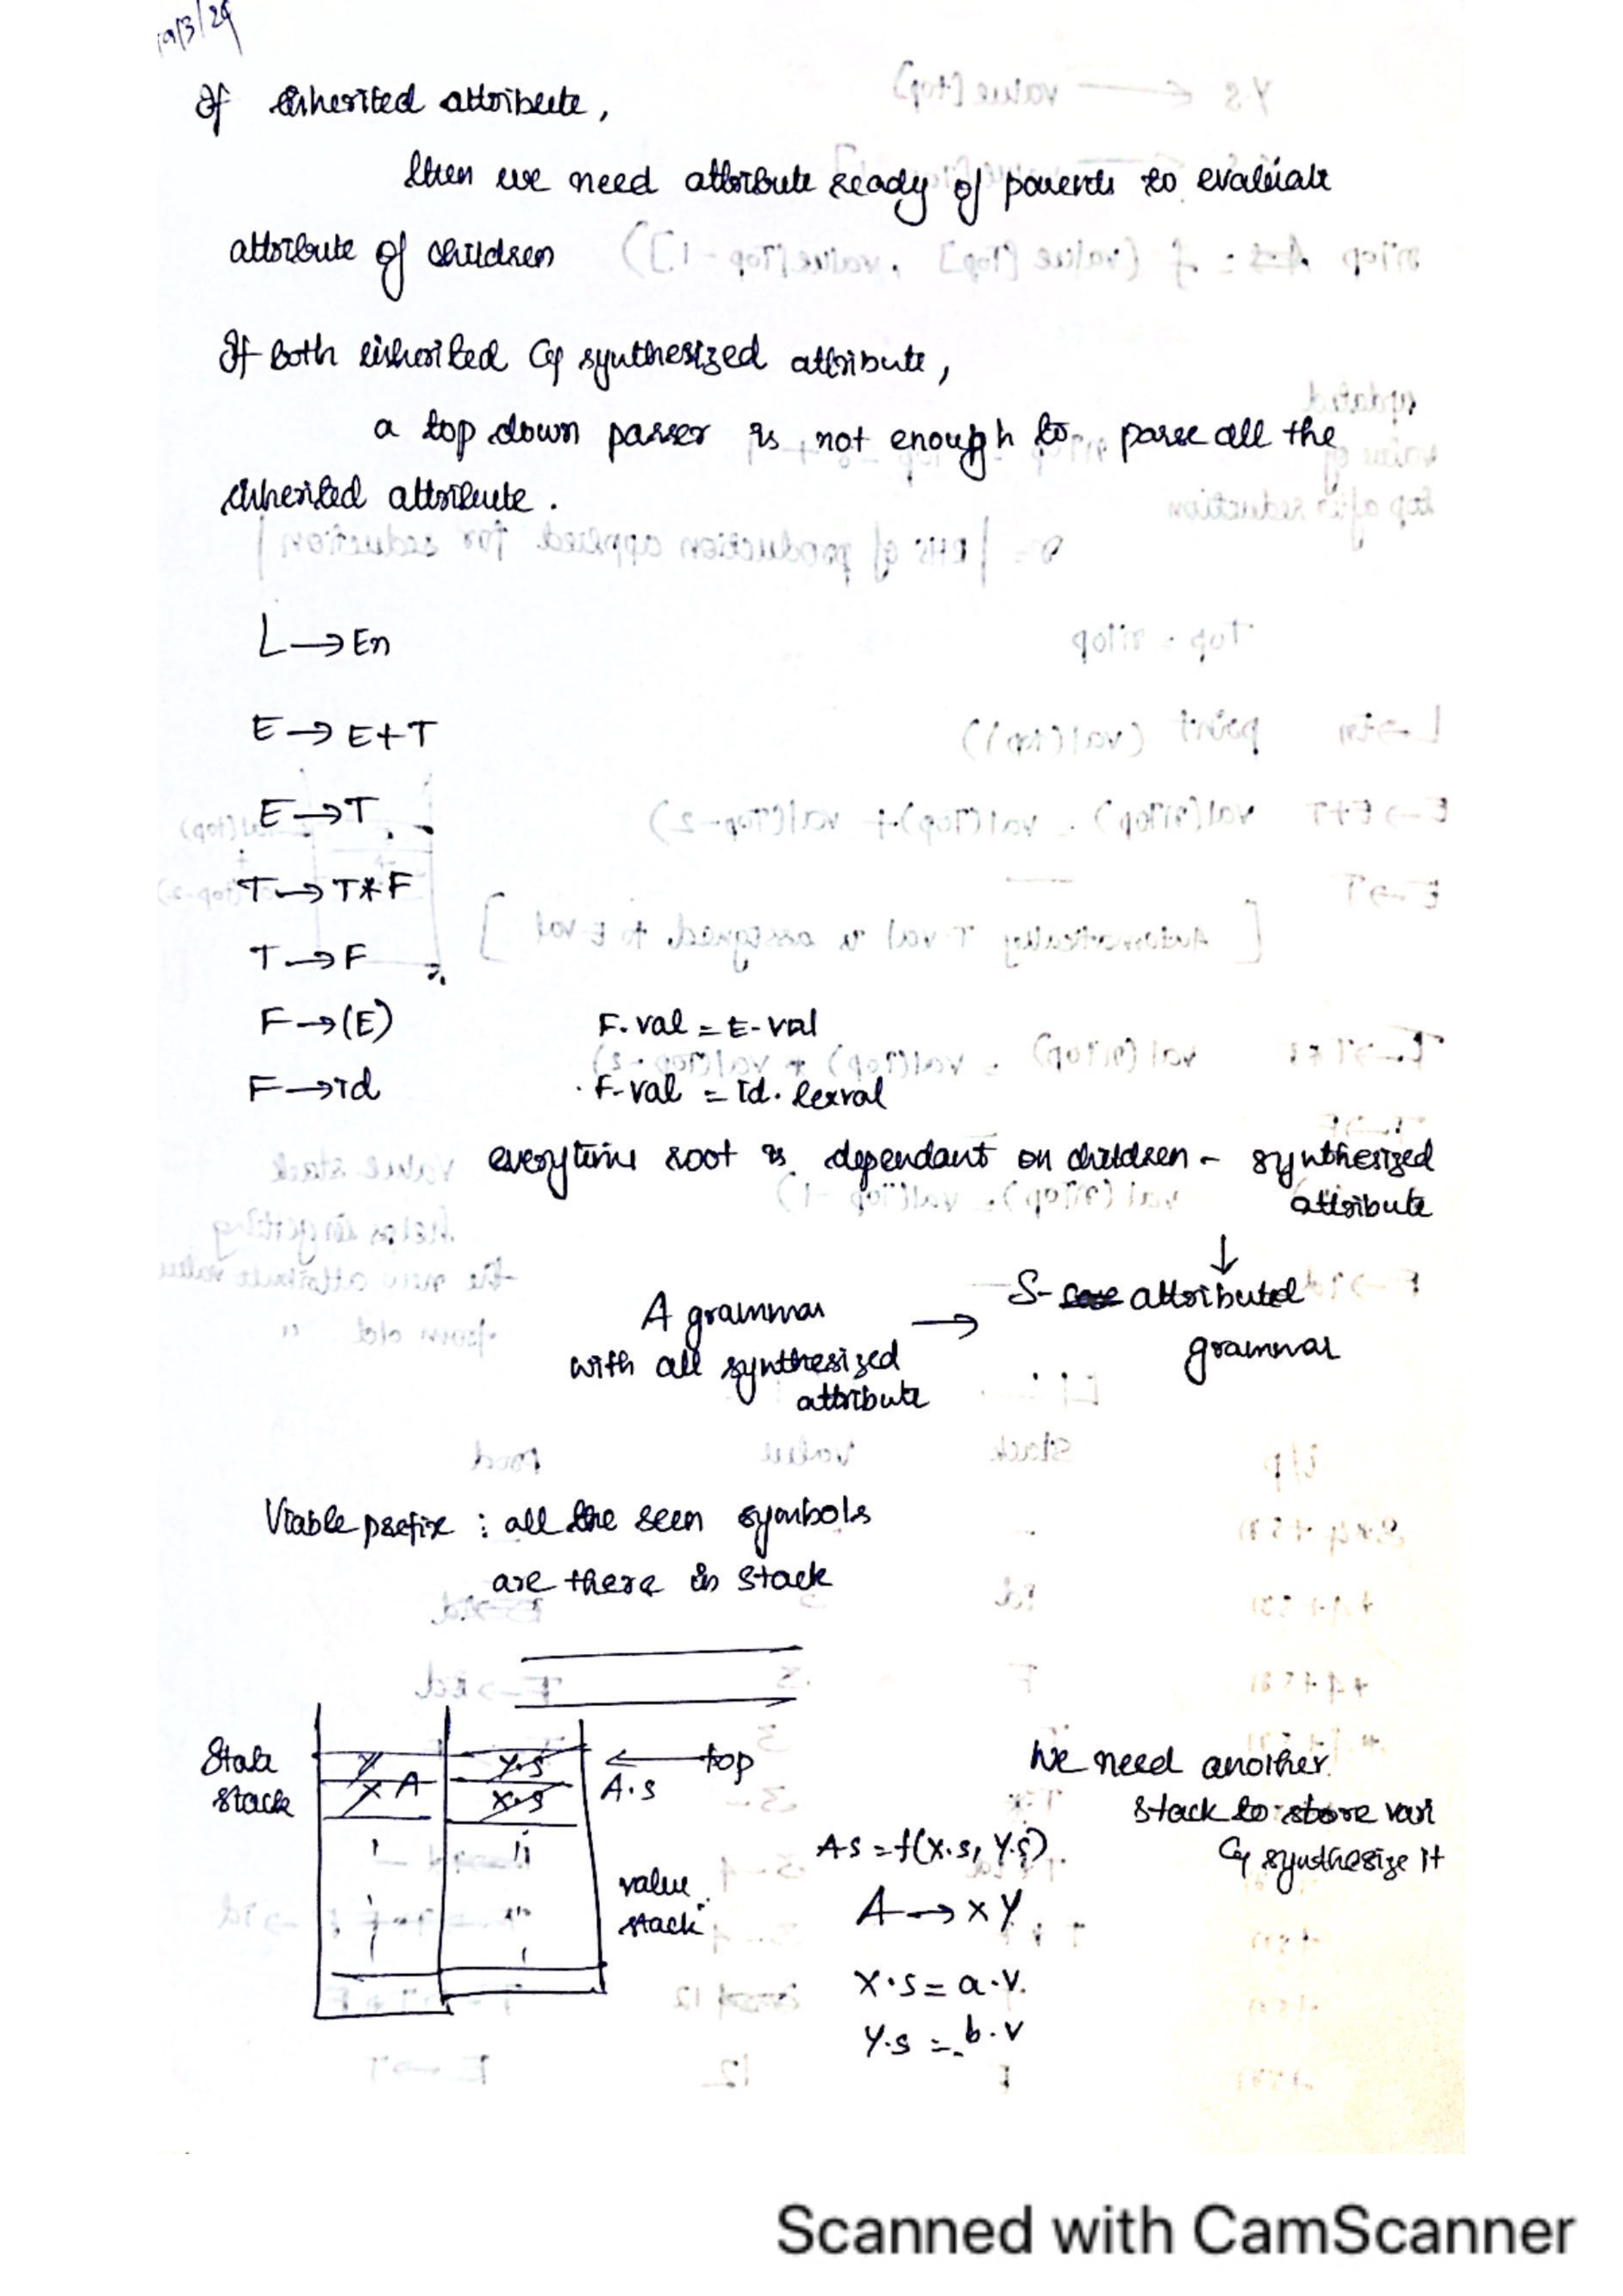 19/3/24
If inherited attribute,
then we need attribute ready of parents to evaluate
attribute of children
If both inherited & synthesized attribute,
a top down parser is not enough to parse all the
inherited attribute.
L → En
E → E+T
E → T
T → T*F
T → F
F → (E) F.val = E.val
F → id F.val = id.lexval
everytime root is dependant on children - synthesized
attribute
↓
A grammar → S- attributed
with all synthesized grammar
attribute
Viable prefix : all the seen symbols
are there in stack
State
stack
Y Y.S ← top
X A X.S A.S
value
stack
We need another
stack to store var
& synthesize it
A.S = f(X.S, Y.S)
A → XY
X.S = a.v.
Y.S = b.v
Scanned with CamScanner